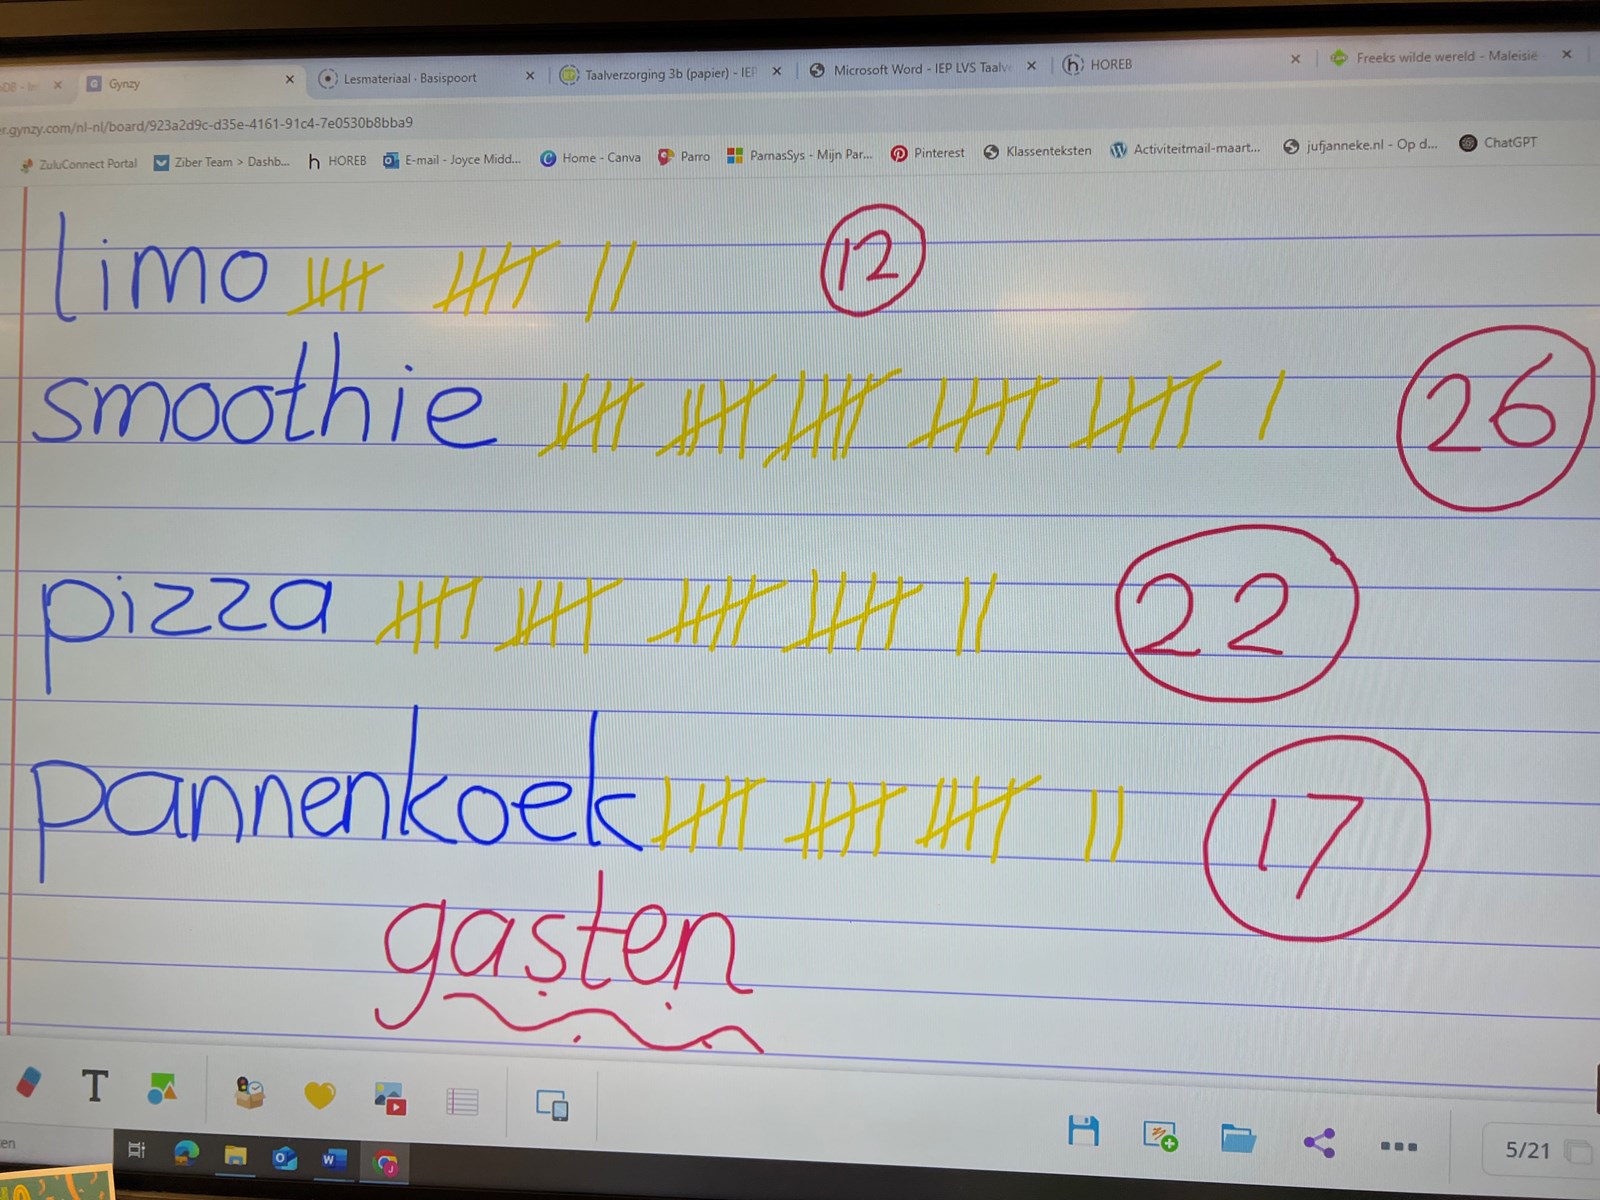 Gynzy
Lesmateriaal · Basispoort
Taalverzorging 3b (papier) - IEP
Microsoft Word - IEP LVS Taalv
HOREB
Freeks wilde wereld - Maleisie
r.gynzy.com/nl-nl/board/923a2d9c-d35e-4161-91c4-7e0530b8bba9
ZuluConnect Portal
Ziber Team > Dashb...
HOREB
E-mail - Joyce Midd...
Home - Canva
Parro
ParnasSys - Mijn Par...
Pinterest
Klassenteksten
Activiteitmail-maart...
jufjanneke.nl - Op d...
ChatGPT
limo 12
smoothie 26
pizza 22
pannenkoek 17
gasten
T
5/21
en